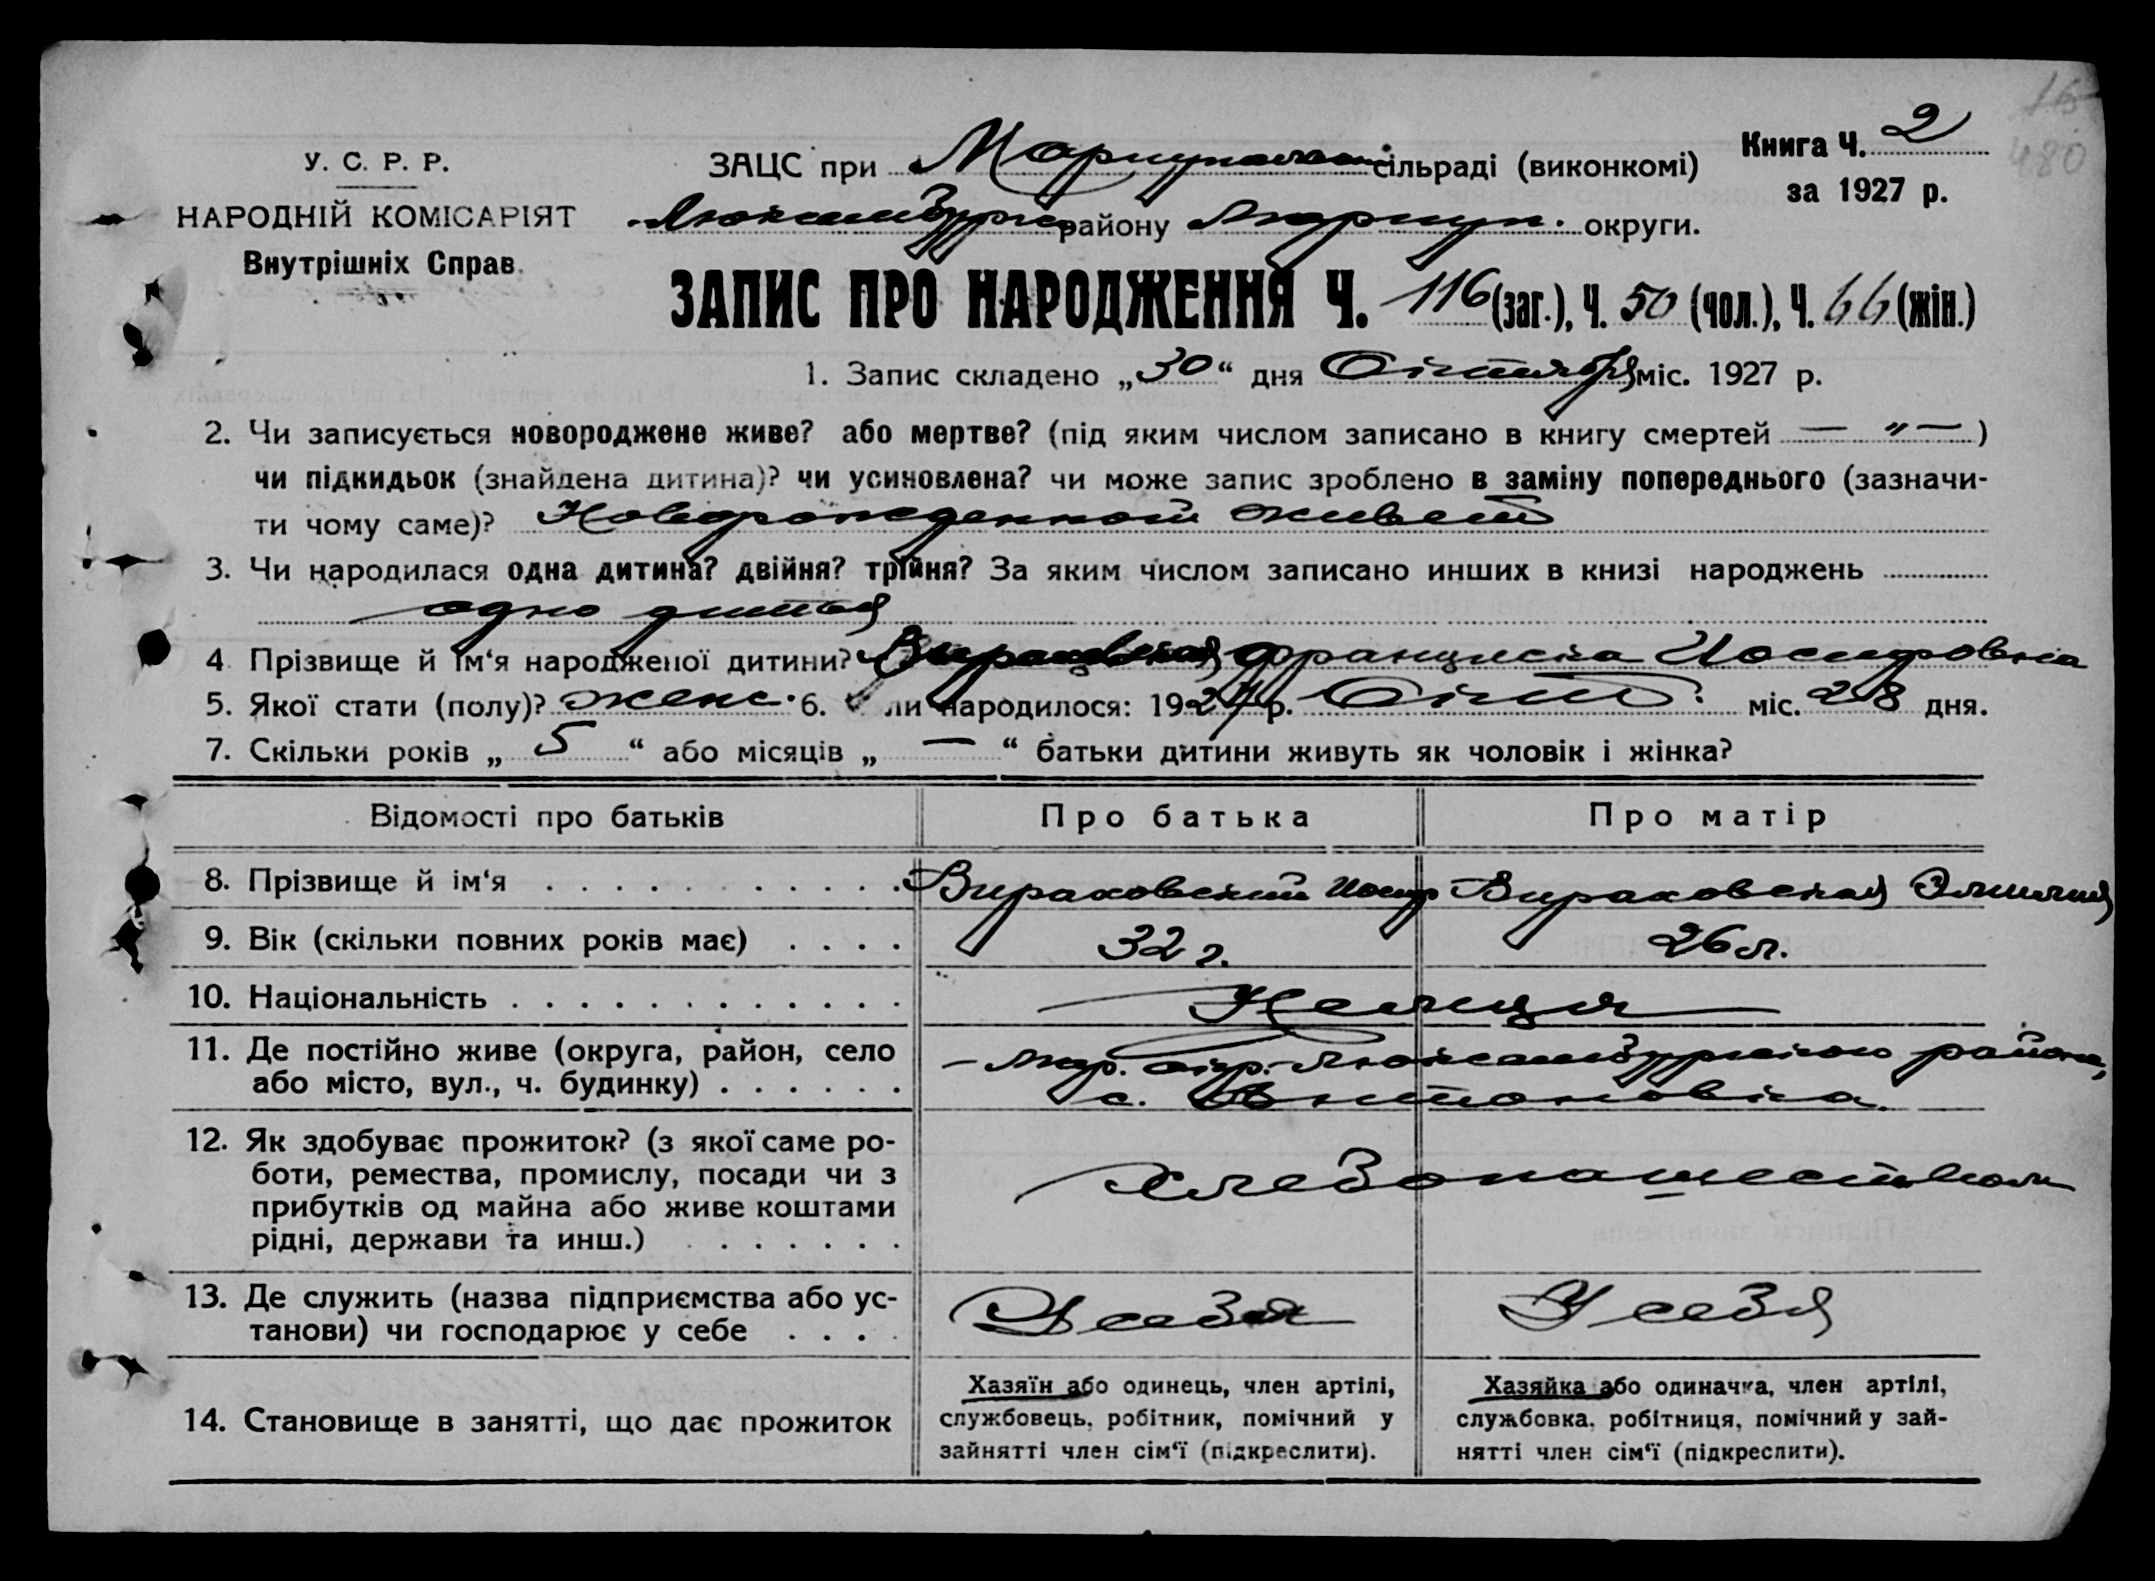 16
480
Книга Ч. 2
за 1927 р.
У. С. Р. Р.
НАРОДНІЙ КОМІСАРІЯТ
Внутрішніх Справ.
ЗАЦС при сільраді (виконкомі)
району Мариуп. округи.
ЗАПИС ПРО НАРОДЖЕННЯ Ч. 116 (заг.), Ч. 50 (чол.), Ч. 66 (жін.)
1. Запис складено „30“ дня Октября міс. 1927 р.
2. Чи записується новороджене живе? або мертве? (під яким числом записано в книгу смертей — „ —)
чи підкидьок (знайдена дитина)? чи усиновлена? чи може запис зроблено в заміну попереднього (зазначи-
ти чому саме)? Новорожденной живет
3. Чи народилася одна дитина? двійня? трійня? За яким числом записано инших в книзі народжень
одно дитя
4. Прізвище й ім‘я народженої дитини? Вираховская Франциска Иосифовна
5. Якої стати (полу)? женс. 6. ли народилося: 1927 р. Окт. міс. 28 дня.
7. Скільки років „ 5 “ або місяців „ — “ батьки дитини живуть як чоловік і жінка?
Відомості про батьків Про батька Про матір
8. Прізвище й ім‘я Вираховский Иосиф Вираховская Эмилия
9. Вік (скільки повних років має) 32 г. 26 л.
10. Національність Немця
11. Де постійно живе (округа, район, село
або місто, вул., ч. будинку)
Мар. окр. Люксембургского района,
с. Антоновка
12. Як здобуває прожиток? (з якої саме ро-
боти, ремества, промислу, посади чи з
прибутків од майна або живе коштами
рідні, держави та инш.)
Хлебопашеством
13. Де служить (назва підприємства або ус-
танови) чи господарює у себе
У себя У себя
14. Становище в занятті, що дає прожиток
Хазяїн або одинець, член артілі,
службовець, робітник, помічний у
зайнятті член сім‘ї (підкреслити).
Хазяйка або одиначка, член артілі,
службовка, робітниця, помічний у зай-
нятті член сім‘ї (підкреслити).